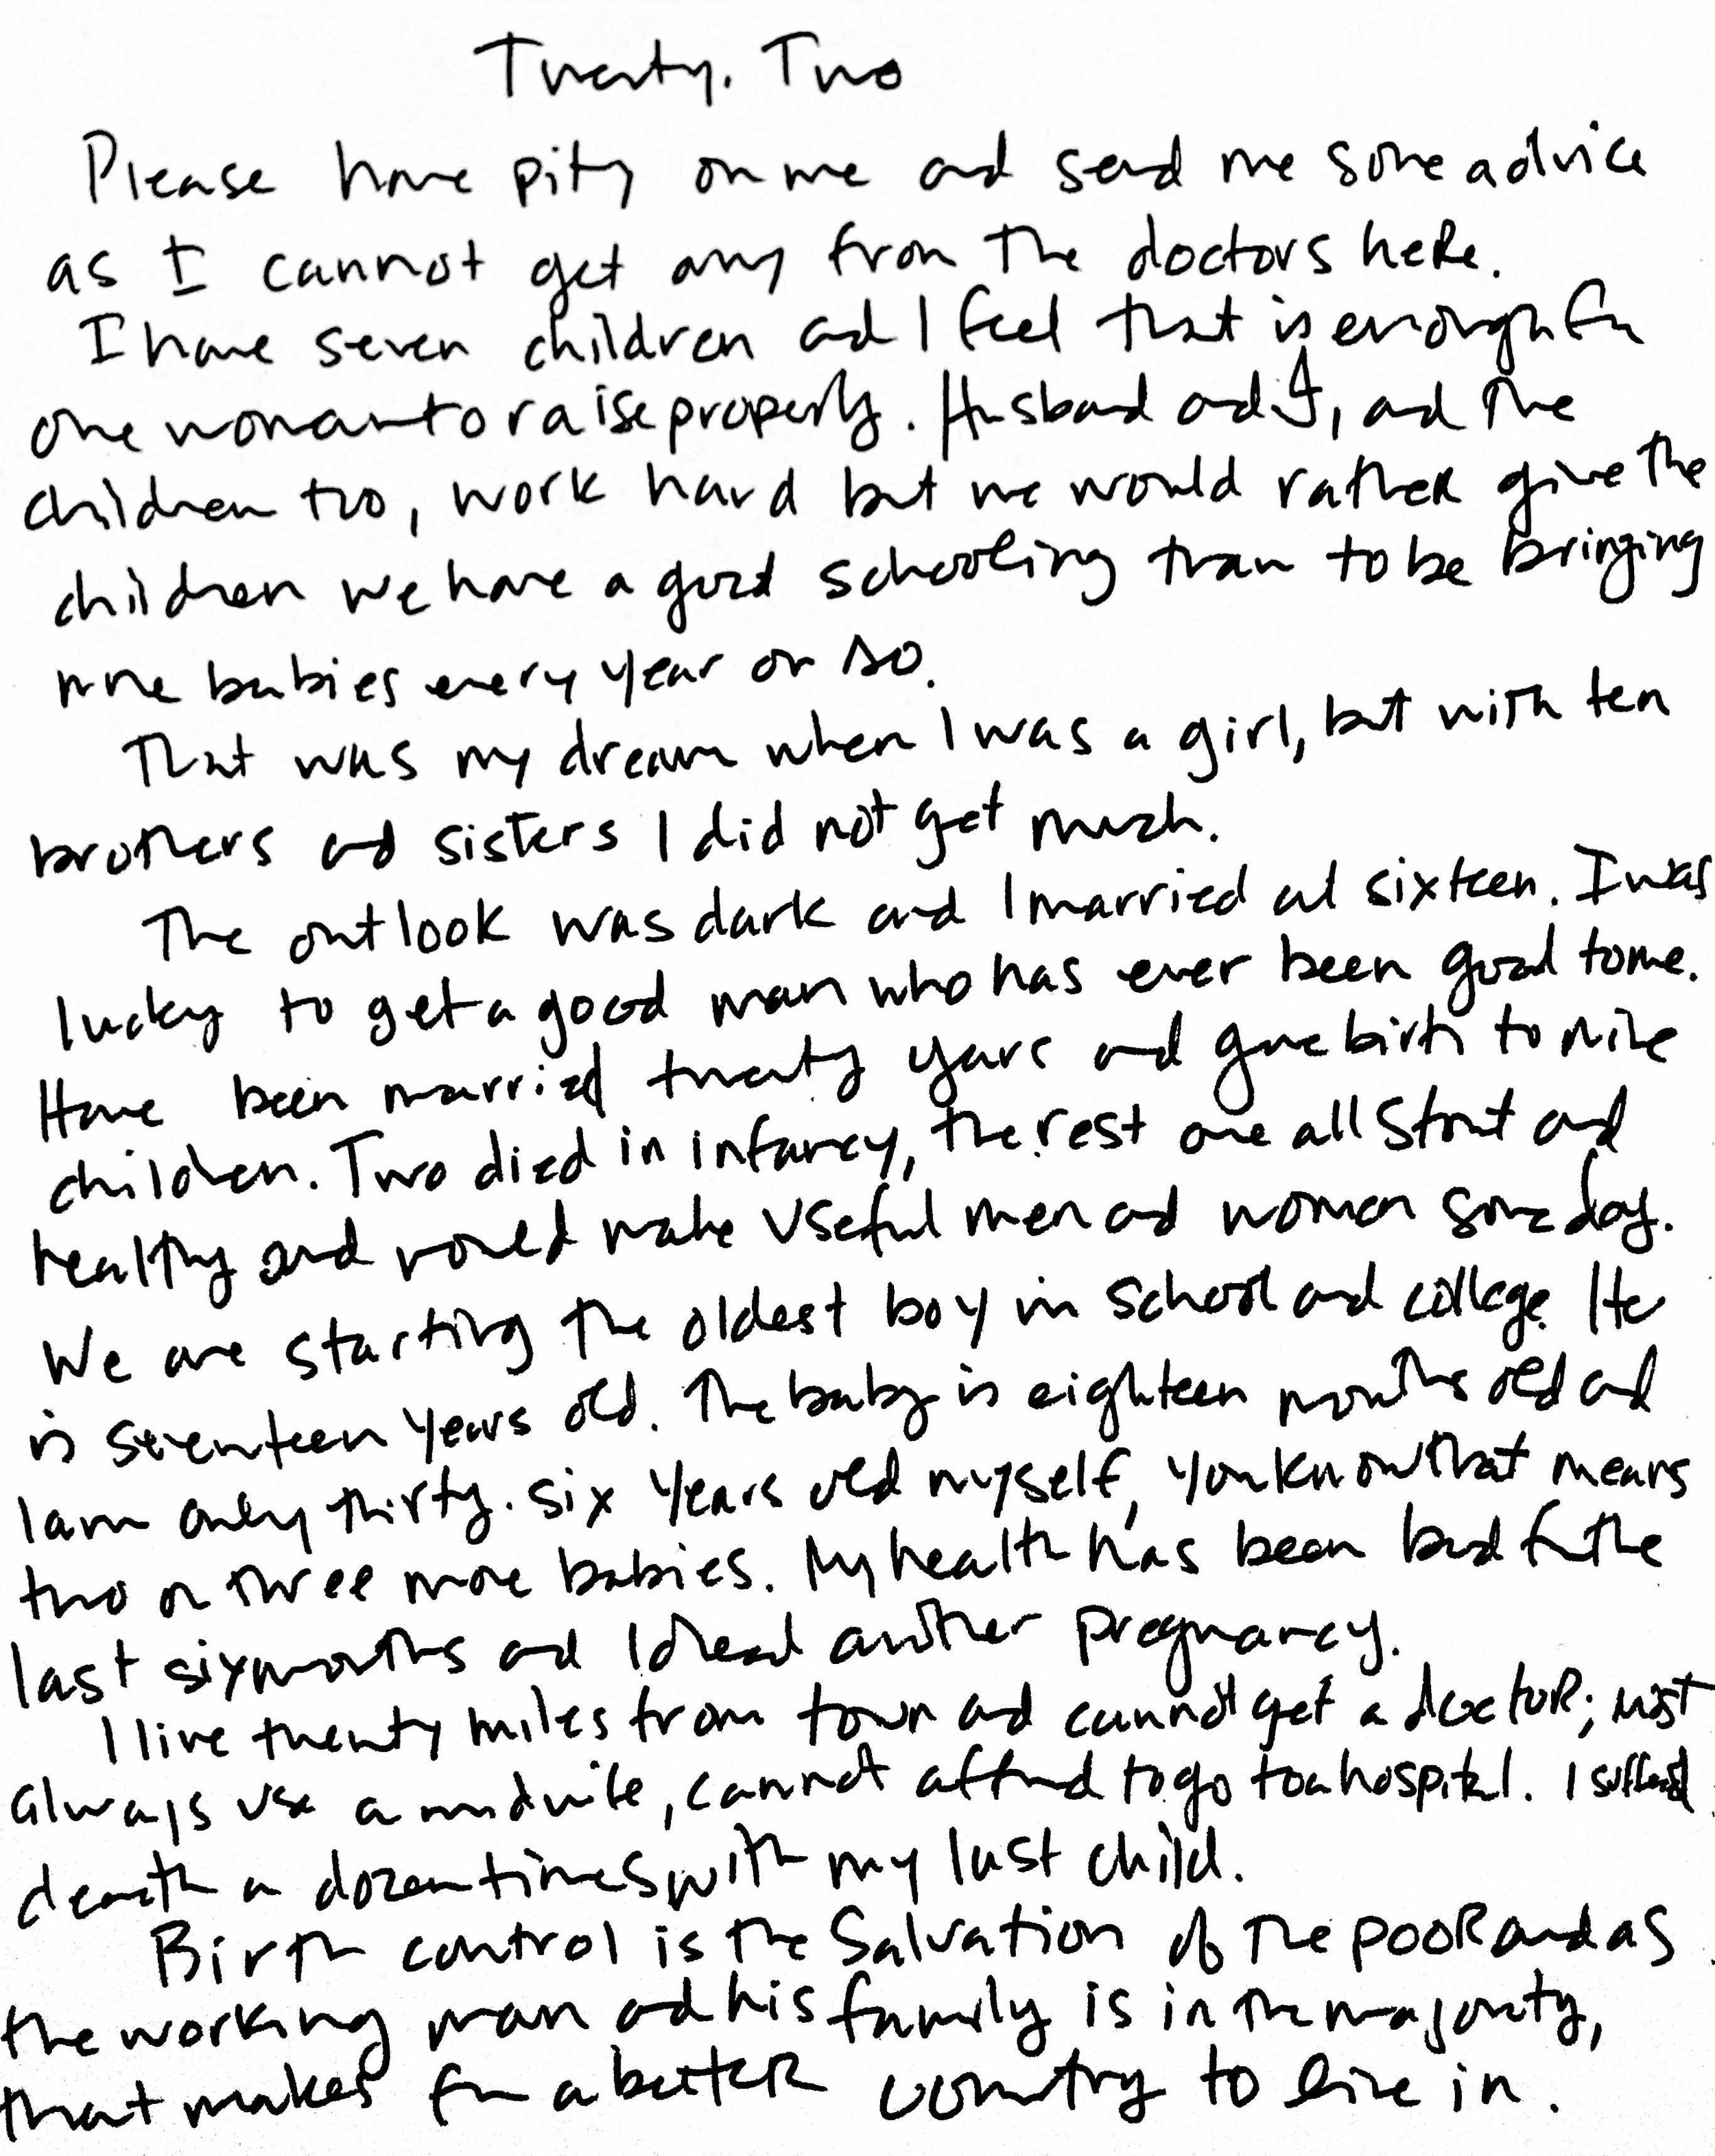 Twenty-Two
Please have pity on me and send me some advice
as I cannot get any from the doctors here.
I have seven children and I feel that is enough for
one woman to raise properly. Husband and I, and the
children too, work hard but we would rather give the
children we have a good schooling than to be bringing
more babies every year or so.
That was my dream when I was a girl, but with ten
brothers and sisters I did not get much.
The outlook was dark and I married at sixteen. I was
lucky to get a good man who has ever been good to me.
Have been married twenty years and gave birth to nine
children. Two died in infancy, the rest are all stout and
healthy and would make useful men and women some day.
We are starting the oldest boy in school and college. He
is seventeen years old. The baby is eighteen months old and
I am only thirty-six years old myself, you know that means
two or three more babies. My health has been bad for the
last six months and I dread another pregnancy.
I live twenty miles from town and cannot get a doctor; must
always use a midwife, cannot afford to go to a hospital. I suffered
death a dozen times with my last child.
Birth control is the Salvation of the poor and as
the working man and his family is in the majority,
that makes for a better country to live in.